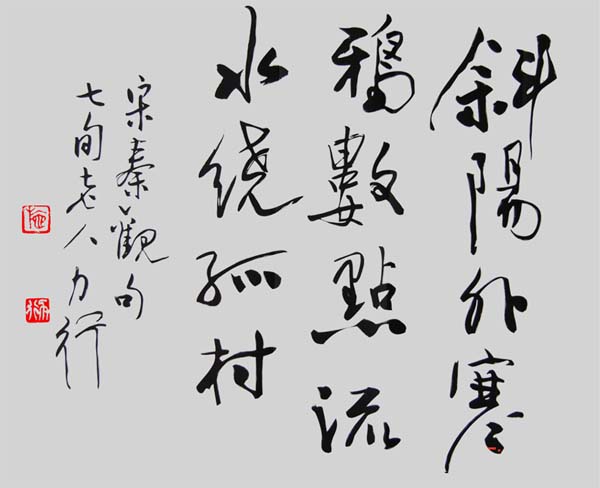 斜陽外寒
鴉數點流
水繞孤村
宋秦觀句
七旬老人力行